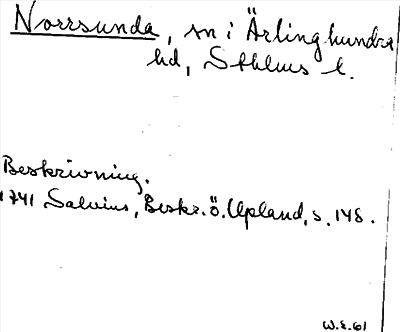 Norrsunda, sn i Ärlinghundra
hd, Sthlms l.
Beskrivning.
1741 Salvius, Beskr. ö. Upland, s. 148.
W.E. 61